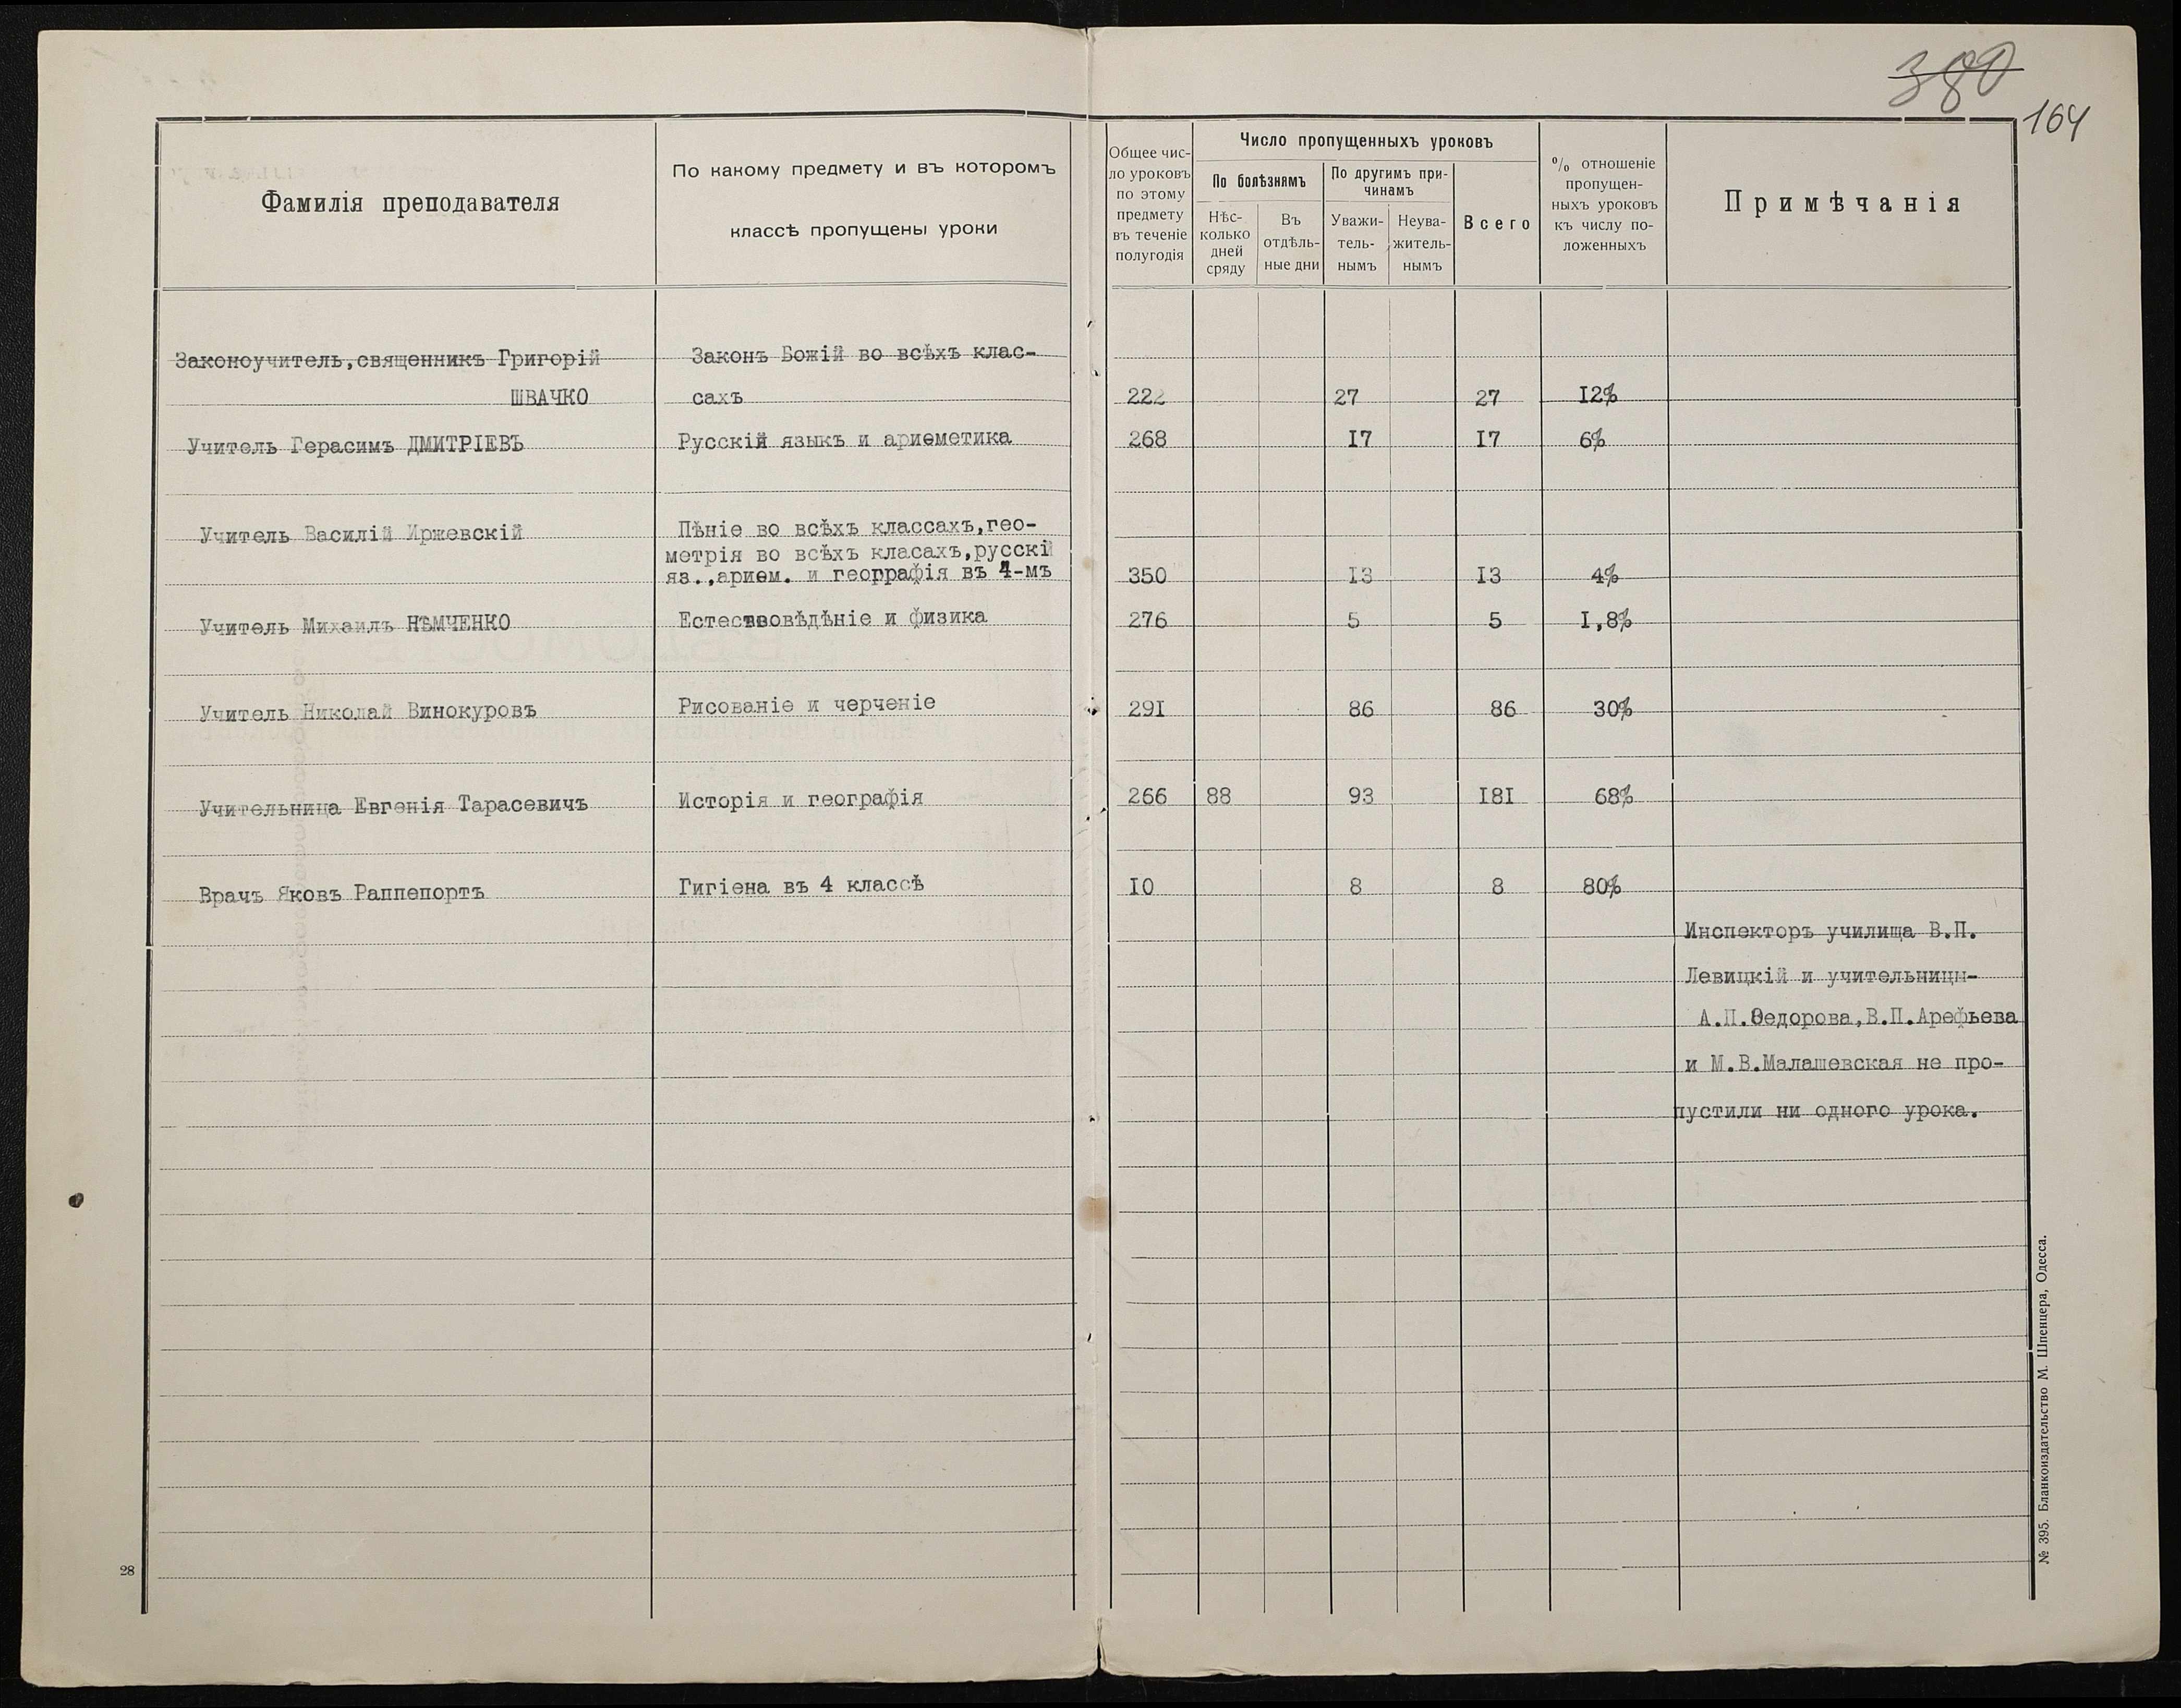 380
164
Фамилія преподавателя
По какому предмету и въ которомъ
классѣ пропущены уроки
Общее чис-
ло уроковъ
по этому
предмету
въ теченіе
полугодія
Число пропущенныхъ уроковъ
По болѣзнямъ
Нѣс-
колько
дней
сряду
Въ
отдѣль-
ные дни
По другимъ при-
чинамъ
Уважи-
тель-
нымъ
Неува-
житель-
нымъ
Всего
% отношеніе
пропущен-
ныхъ уроковъ
къ числу по-
ложенныхъ
Примѣчанія
Законоучитель, священникъ Григорій Законъ Божій во всѣхъ клас-
ШВАЧКО сахъ 222 27 27 12%
Учитель Герасимъ ДМИТРІЕВЪ Русскій языкъ и ариѳметика 268 17 17 6%
Учитель Василій Иржевскій Пѣніе во всѣхъ классахъ, гео-
метрія во всѣхъ класахъ, русскій
яз., ариѳм. и географія въ 4-мъ 350 13 13 4%
Учитель Михаилъ НѢМЧЕНКО Естествовѣдѣніе и физика 276 5 5 1,8%
Учитель Николай Винокуровъ Рисованіе и черченіе 291 86 86 30%
Учительница Евгенія Тарасевичъ Исторія и географія 266 88 93 181 68%
Врачъ Яковъ Раппепортъ Гигіена въ 4 классѣ 10 8 8 80%
Инспекторъ училища В.П.
Левицкій и учительницы-
А.П.Ѳедорова, В.П.Арефьева
и М.В.Малашевская не про-
пустили ни одного урока.
28
№ 395. Бланкоиздательство М. Шпенцера, Одесса.